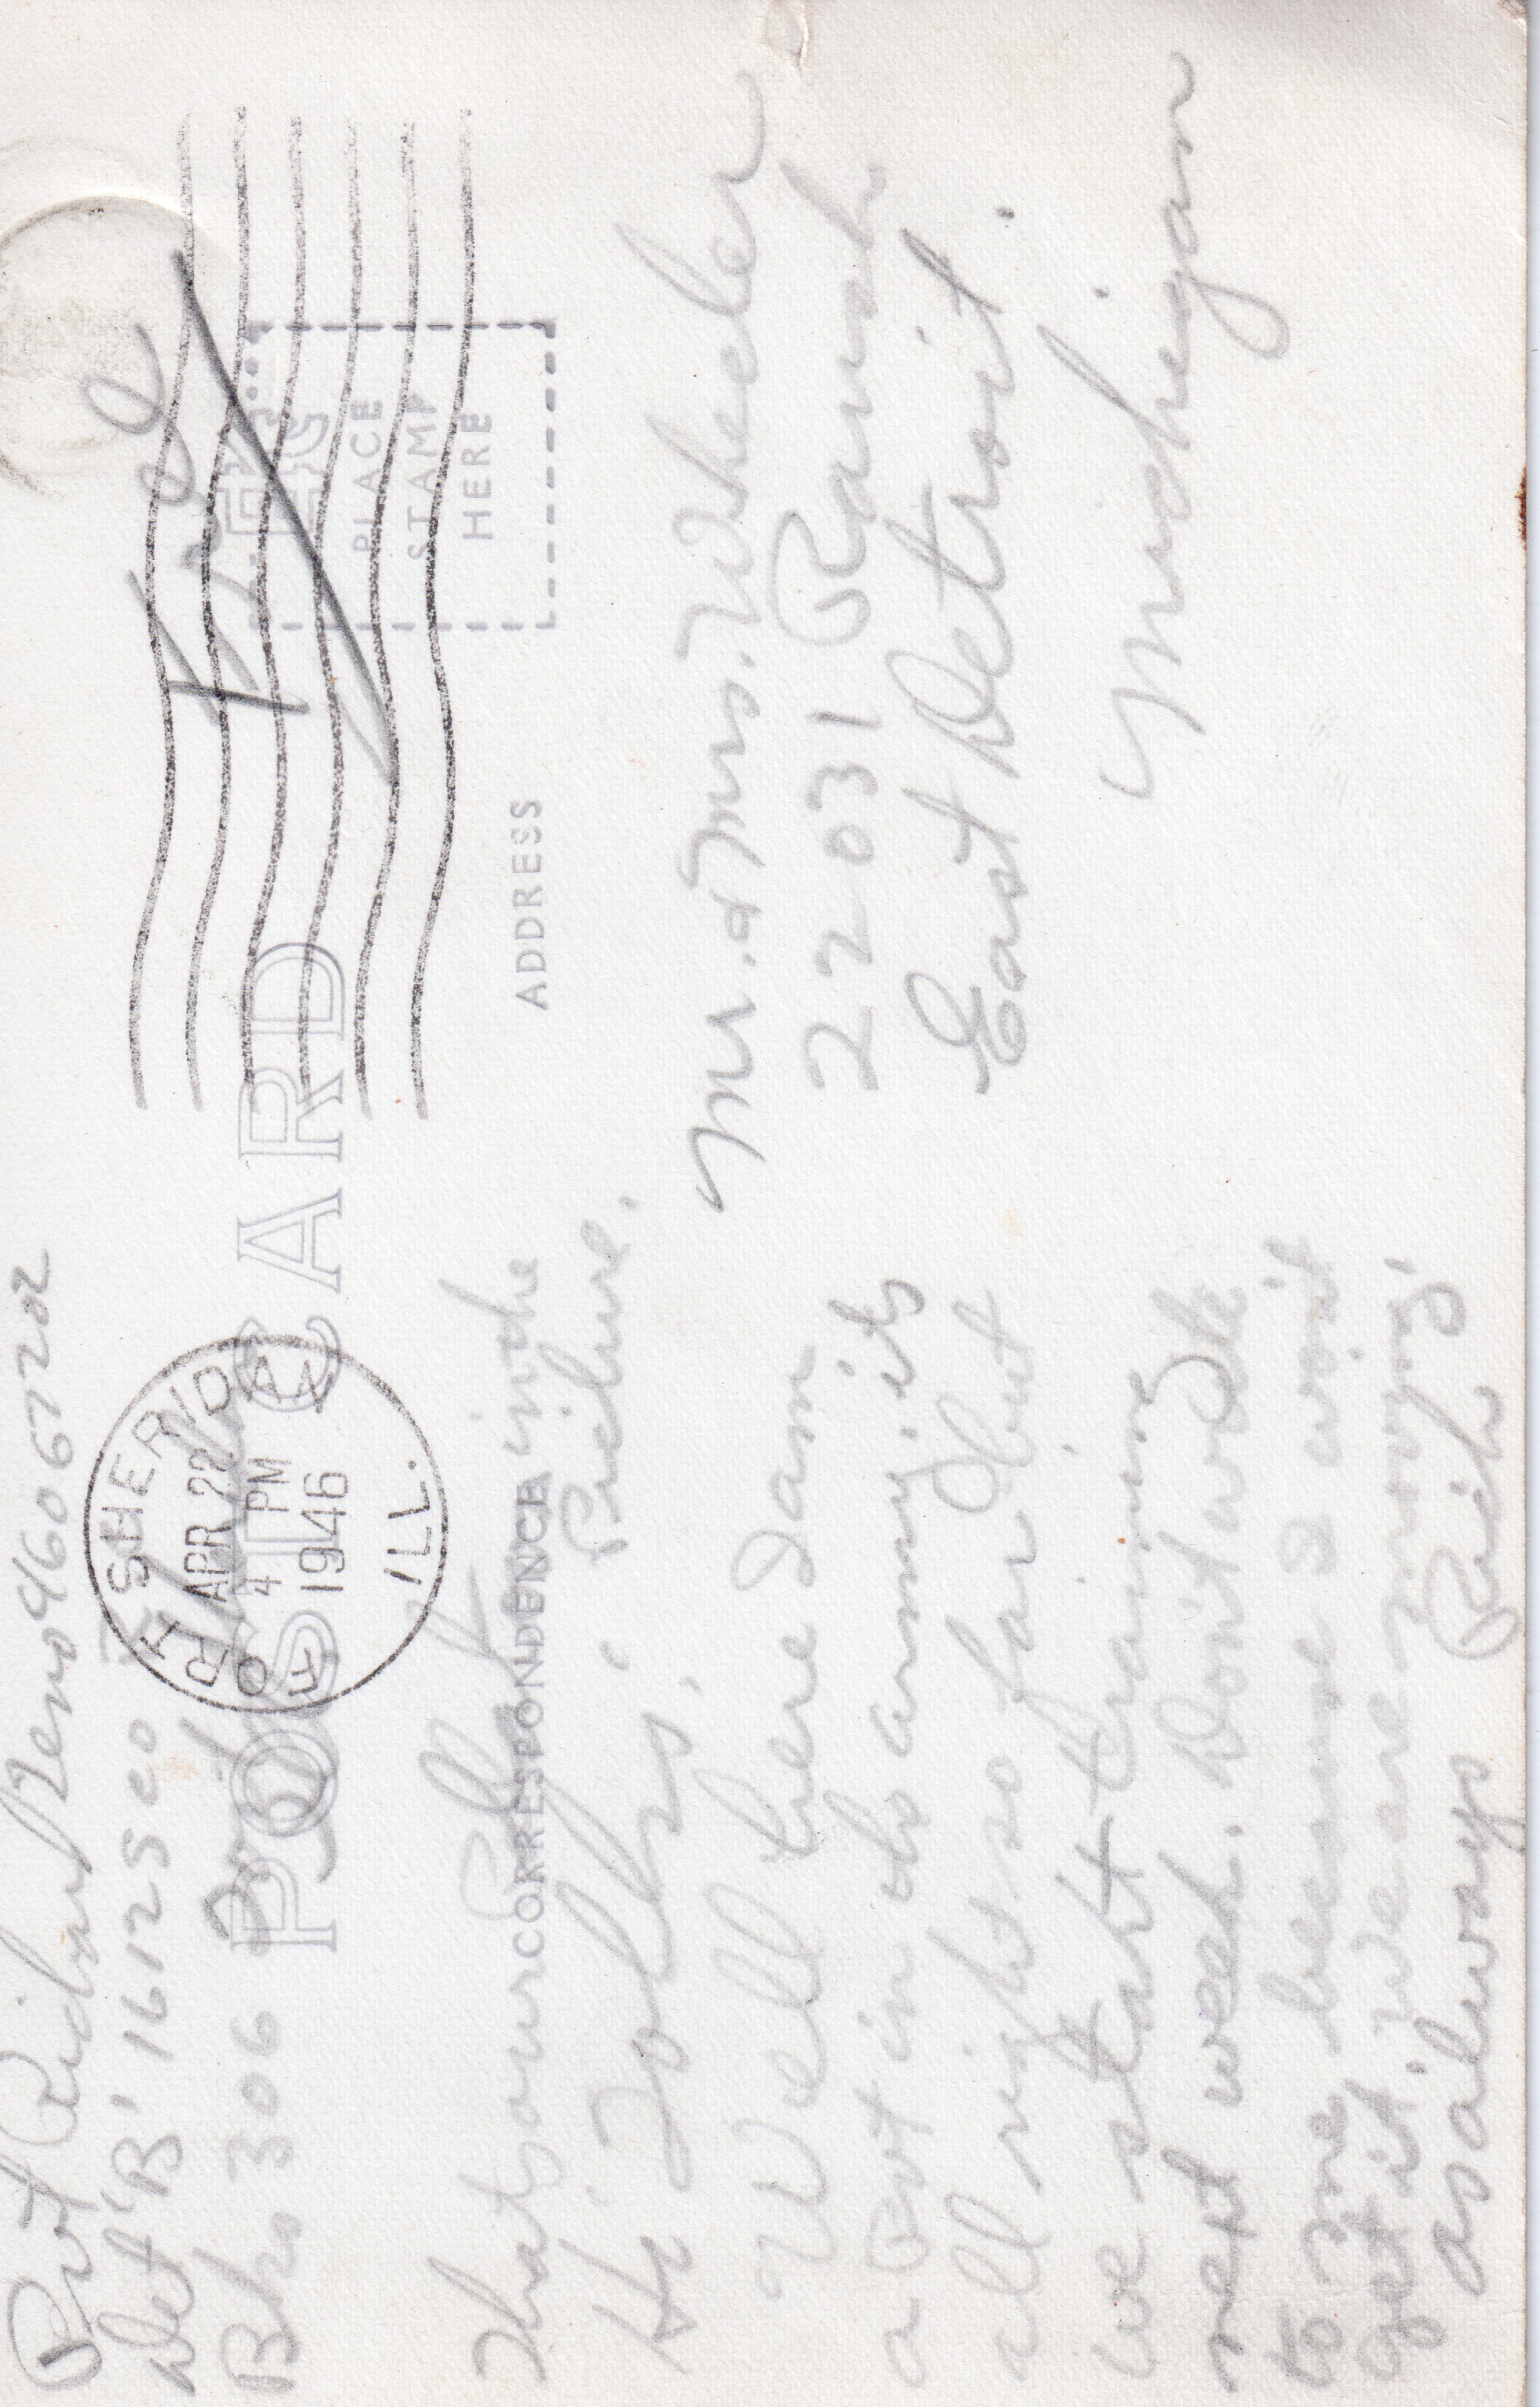 Pvt Richard Zeno 46067202
Det 'B' 1612 S CO
Bks 306
FORT SHERIDAN
APR 22
4 PM
1946
ILL.
Free
POST CARD
PLACE
STAMP
HERE
CORRESPONDENCE
ADDRESS
Thats our in the
Picture.
Hi' Folks'.
Well here I am
a Pvt in the army its
all right so far But
we start training
next week. Don't write
to me because I wont
get it we are moving'
as always Rich
Mr. & Mrs. Wheeler
22031 Raush
East Detroit.
Michigan